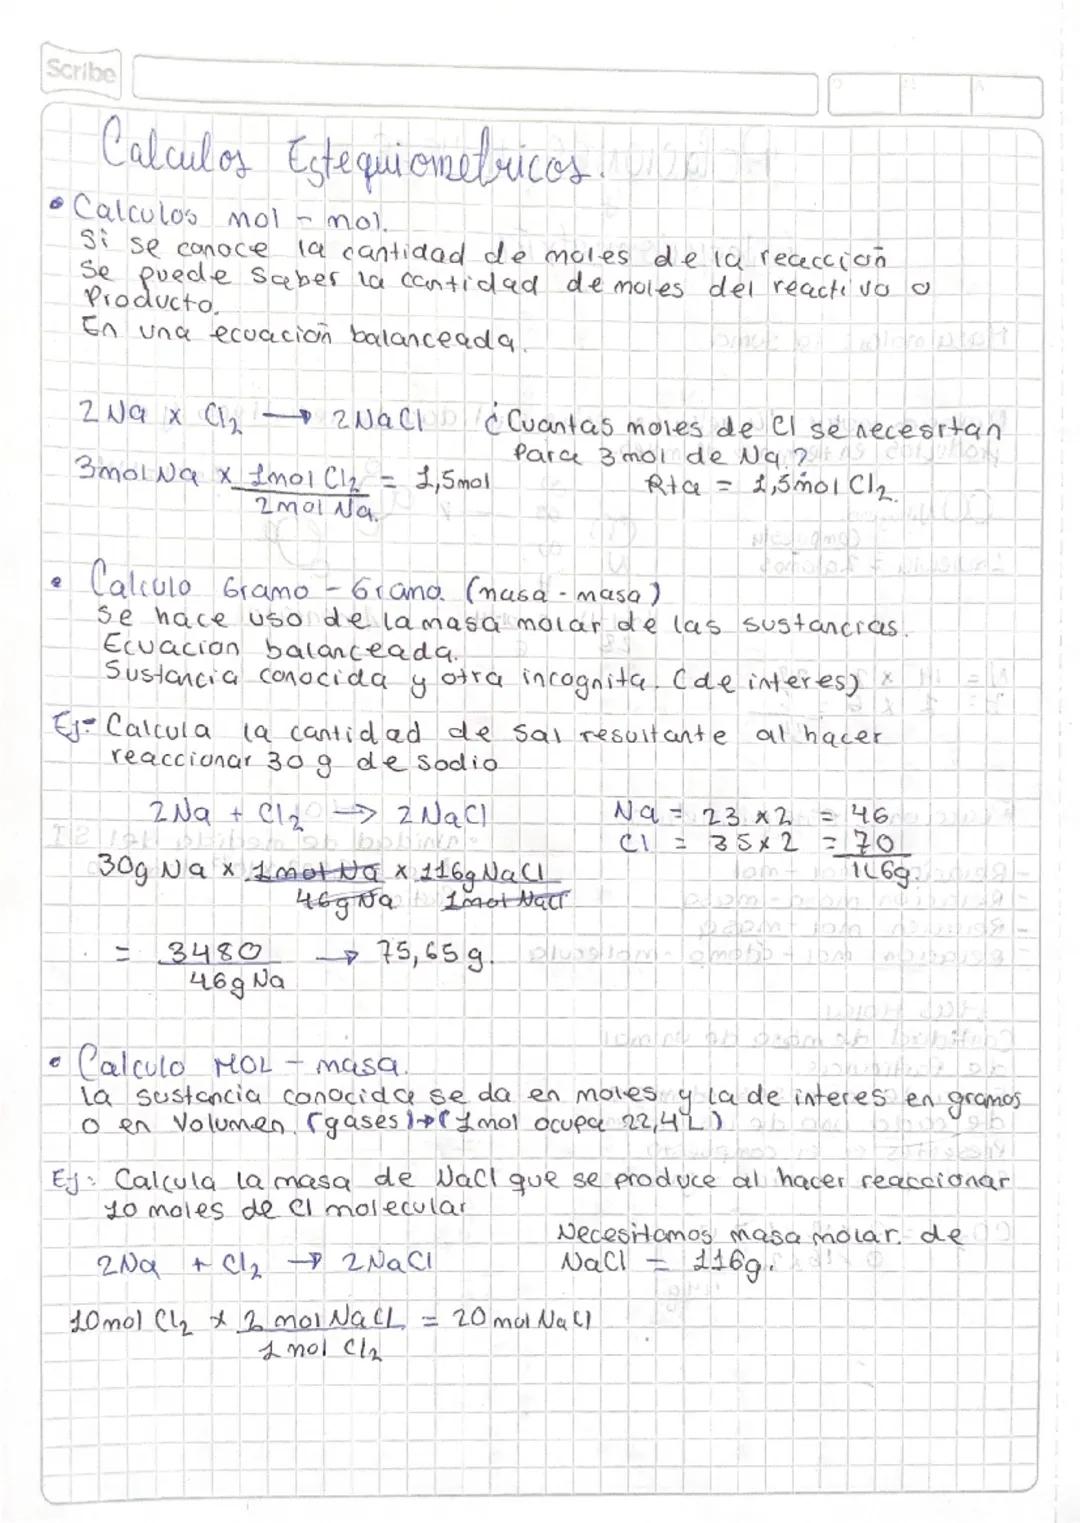 Scribe
Calculos Estequiometricos.
• Calculos mol - mol.
Si se conoce la cantidad de moles de la reacción
se puede saber la cantidad de moles del reactivo o
Producto.
En una ecuación balanceada.
2 Na x Cl₂ → 2 NaCl ¿Cuantas moles de Cl se necesitan
Para 3 mol de Na?
3mol Na x 1mol Cl₂ = 1,5mol Rta = 1,5mol Cl₂.
2mol Na.
• Calculo Gramo - Gramo (masa - masa)
Se hace uso de la masa molar de las sustancias.
Ecuacion balanceada.
Sustancia conocida y otra incognita. (de interes)
Ej: Calcula la cantidad de sal resultante al hacer
reaccionar 30 g de sodio
2Na + Cl₂ → 2NaCl Na = 23 x2 = 46
Cl = 35x2 = 70
30g Na x 1mol Na x 116g NaCl 116g.
46g Na 1mol NaCl
= 3480 → 75,65 g.
46g Na
• Calculo MOL - masa.
la sustancia conocida se da en moles y la de interes en gramos
o en Volumen. (gases) → (1mol ocupa 22,4L)
Ej: Calcula la masa de NaCl que se produce al hacer reaccionar
10 moles de Cl molecular
Necesitamos masa molar. de
2Na + Cl₂ → 2NaCl NaCl = 116g.
10mol Cl₂ x 2 mol NaCl = 20 mol NaCl
1 mol Cl₂